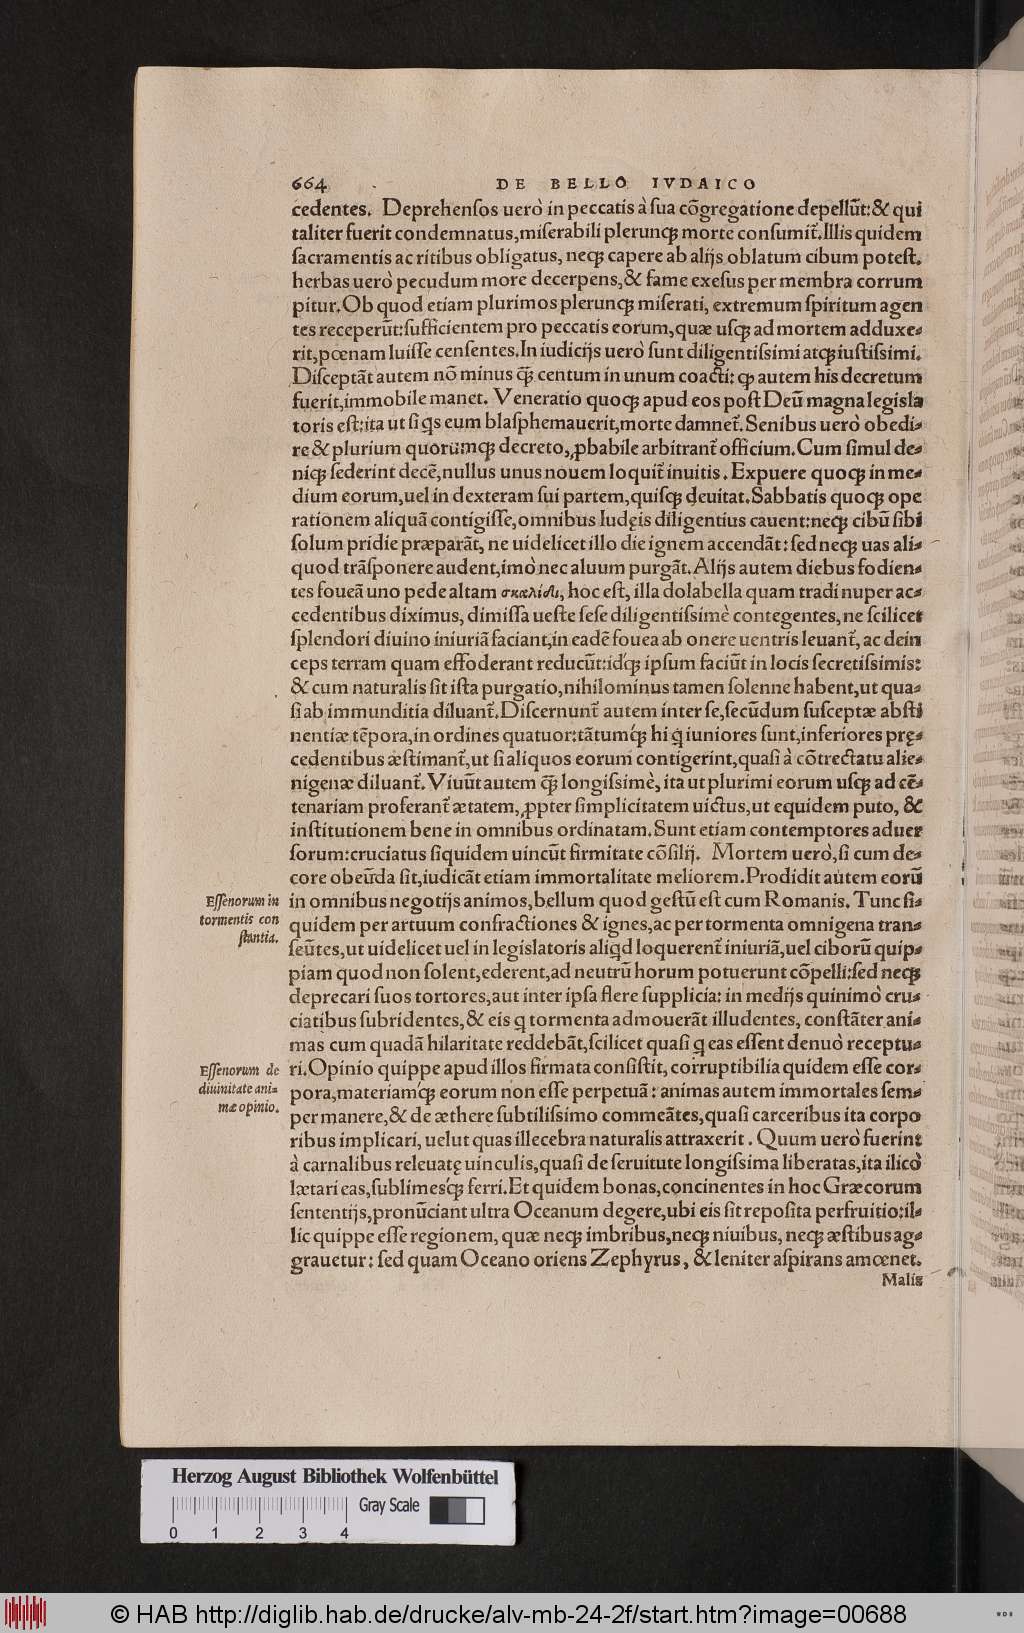 664 DE BELLO IVDAICO
cedentes. Deprehenſos uerò in peccatis à ſua cõgregatione depellũt: & qui
taliter fuerit condemnatus, miſerabili plerunqꝫ morte conſumit̃. Illis quidem
ſacramentis ac ritibus obligatus, neqꝫ capere ab alijs oblatum cibum poteſt.
herbas uerò pecudum more decerpens, & fame exeſus per membra corrum
pitur. Ob quod etiam plurimos plerunqꝫ miſerati, extremum ſpiritum agen
tes receperũt: ſufficientem pro peccatis eorum, quæ uſqꝫ ad mortem adduxe-
rit, pœnam luiſſe cenſentes. In iudicijs uerò ſunt diligentiſsimi atqꝫ iuſtiſsimi.
Diſceptãt autem nõ minus q̃ꝫ centum in unum coacti: qꝫ autem his decretum
fuerit, immobile manet. Veneratio quoqꝫ apud eos poſt Deũ magna legisla
toris eſt: ita ut ſi q̃s eum blaſphemauerit, morte damnet̃. Senibus uerò obedi-
re & plurium quorumqꝫ decreto, ꝓbabile arbitrant̃ officium. Cum ſimul de-
niqꝫ ſederint decẽ, nullus unus nouem loquit̃ inuitis. Expuere quoqꝫ in me-
dium eorum, uel in dexteram ſui partem, quiſqꝫ deuitat. Sabbatis quoqꝫ ope
rationem aliquã contigiſſe, omnibus Iudęis diligentius cauent: neqꝫ cibũ ſibi
ſolum pridie præparãt, ne uidelicet illo die ignem accendãt: ſed neqꝫ uas ali-
quod trãſponere audent, imò nec aluum purgãt. Alijs autem diebus fodien-
tes foueã uno pede altam σκαλίδι, hoc eſt, illa dolabella quam tradi nuper ac-
cedentibus diximus, dimiſſa ueſte ſeſe diligentiſsimè contegentes, ne ſcilicet
ſplendori diuino iniuriã faciant, in eadẽ fouea ab onere uentris leuant̃, ac dein
ceps terram quam effoderant reducũt: idqꝫ ipſum faciũt in locis ſecretiſsimis:
& cum naturalis ſit iſta purgatio, nihilominus tamen ſolenne habent, ut qua-
ſi ab immunditia diluant̃. Diſcernunt̃ autem inter ſe, ſecũdum ſuſceptæ abſti
nentiæ tẽpora, in ordines quatuor: tãtumqꝫ hi q̃ iuniores ſunt, inferiores prę-
cedentibus æſtimant̃, ut ſi aliquos eorum contigerint, quaſi à cõtrectatu alie-
nigenæ diluant̃. Viuũt autem q̃ꝫ longiſsimè, ita ut plurimi eorum uſqꝫ ad cẽ-
tenariam proferant̃ ætatem, ꝓpter ſimplicitatem uictus, ut equidem puto, &
inſtitutionem bene in omnibus ordinatam. Sunt etiam contemptores aduer
ſorum: cruciatus ſiquidem uincũt firmitate cõſilij. Mortem uerò, ſi cum de-
core obeũda ſit, iudicãt etiam immortalitate meliorem. Prodidit autem eorũ
in omnibus negotijs animos, bellum quod geſtũ eſt cum Romanis. Tunc ſi-
quidem per artuum confractiones & ignes, ac per tormenta omnigena tran-
ſeũtes, ut uidelicet uel in legislatoris aliq̃d loquerent̃ iniuriã, uel ciborũ quip-
piam quod non ſolent, ederent, ad neutrũ horum potuerunt cõpelli: ſed neqꝫ
deprecari ſuos tortores, aut inter ipſa flere ſupplicia: in medijs quinimò cru-
ciatibus ſubridentes, & eis q̃ tormenta admouerãt illudentes, conſtãter ani-
mas cum quadã hilaritate reddebãt, ſcilicet quaſi q̃ eas eſſent denuò receptu-
ri. Opinio quippe apud illos firmata conſiſtit, corruptibilia quidem eſſe cor-
pora, materiamqꝫ eorum non eſſe perpetuã: animas autem immortales ſem-
per manere, & de æthere ſubtiliſsimo commeãtes, quaſi carceribus ita corpo
ribus implicari, uelut quas illecebra naturalis attraxerit. Quum uerò fuerint
à carnalibus releuatę uinculis, quaſi de ſeruitute longiſsima liberatas, ita ilicò
lætari eas, ſublimesqꝫ ferri. Et quidem bonas, concinentes in hoc Græcorum
ſententijs, pronũciant ultra Oceanum degere, ubi eis ſit repoſita perfruitio: il-
lic quippe eſſe regionem, quæ neqꝫ imbribus, neqꝫ niuibus, neqꝫ æſtibus ag-
grauetur: ſed quam Oceano oriens Zephyrus, & leniter aſpirans amœnet.
Malis
Eſſenorum in
tormentis con
ſtantia.
Eſſenorum de
diuinitate ani-
mæ opinio.
Herzog August Bibliothek Wolfenbüttel
Gray Scale
0 1 2 3 4
© HAB http://diglib.hab.de/drucke/alv-mb-24-2f/start.htm?image=00688